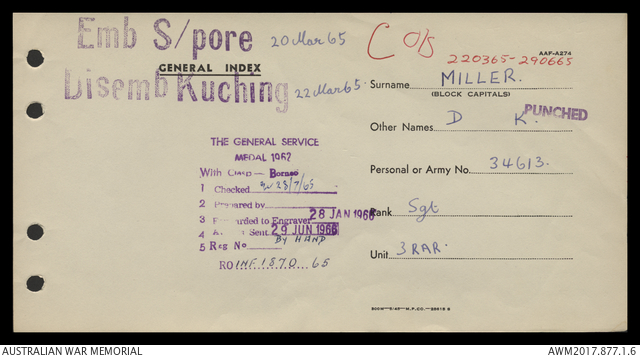 Emb S/pore 20 Mar 65
GENERAL INDEX
Disemb Kuching 22 Mar 65.
C O/S
220365-290665
AAF-A274
Surname MILLER.
(BLOCK CAPITALS)
PUNCHED
Other Names D K.
Personal or Army No. 34613.
Rank Sgt
Unit 3 RAR.
THE GENERAL SERVICE
MEDAL 1962
With Clasp — Borneo
1 Checked 28/7/65
2 Prepared by
3 Forwarded to Engraver 28 JAN 1966
4 Sent 29 JUN 1966
BY HAND
5 Reg No
RO INF 1870 65
AUSTRALIAN WAR MEMORIAL
AWM2017.877.1.6